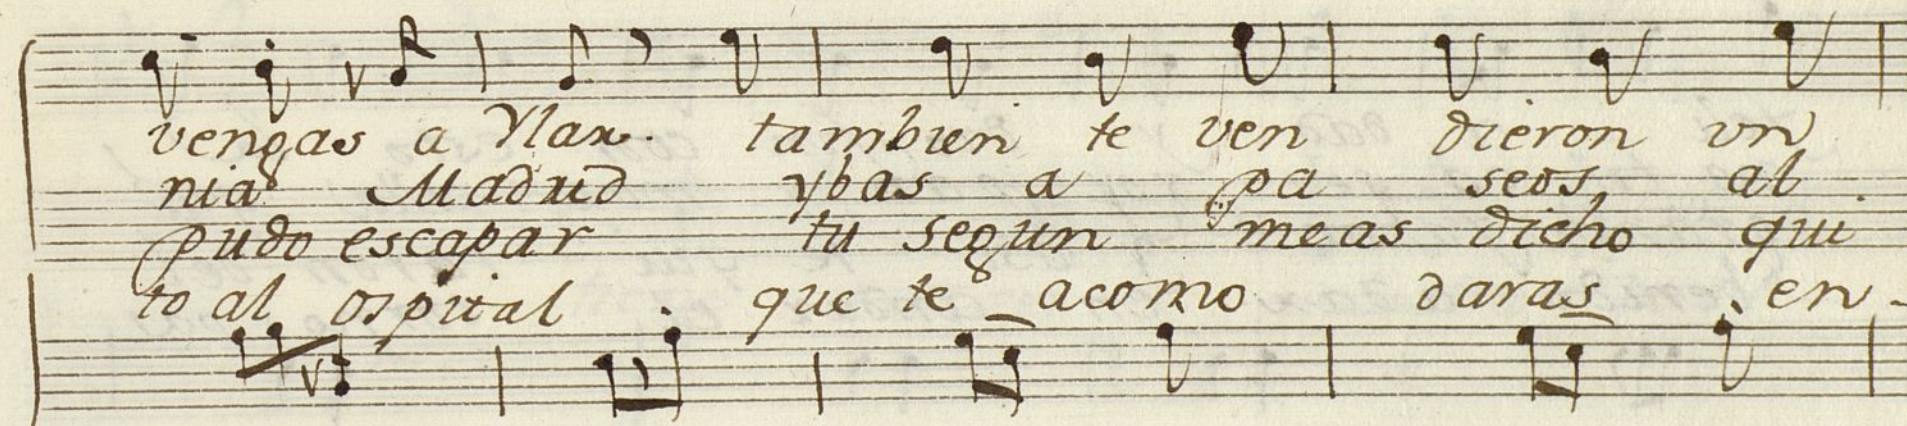 vengas a Ylar. tambien te ven dieron vn
nia Madrid ybas a pa seos al
pudo escapar tu segun me as dicho qui
to al ospital que te acomo daras en-